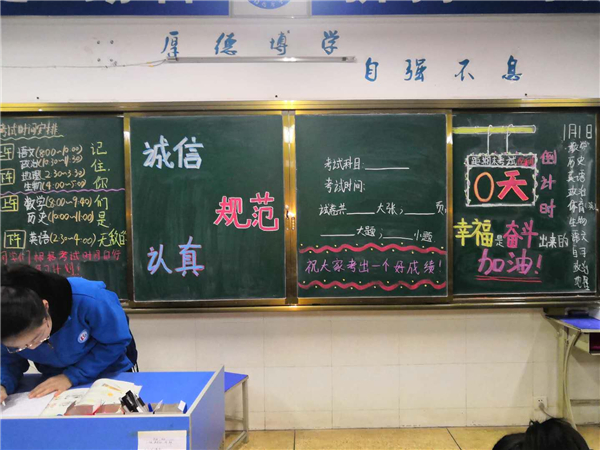 厚德博学
自强不息
考试时间安排
语文(8:00-10:00)
政治(10:30-11:30)
地理(2:30-3:30)
生物(4:00-5:00)
数学(8:00-9:40)
历史(10:00-11:00)
下午 英语(2:30-4:00)
记住,你们是
诚信
规范
认真
考试科目:
考试时间:
试卷共____大张,____页,
____大题,____小题
祝大家考出一个好成绩!
0天
倒计时
幸福是奋斗出来的
加油!
1月1日
数学
历史
英语
政治
体育
生物
语文